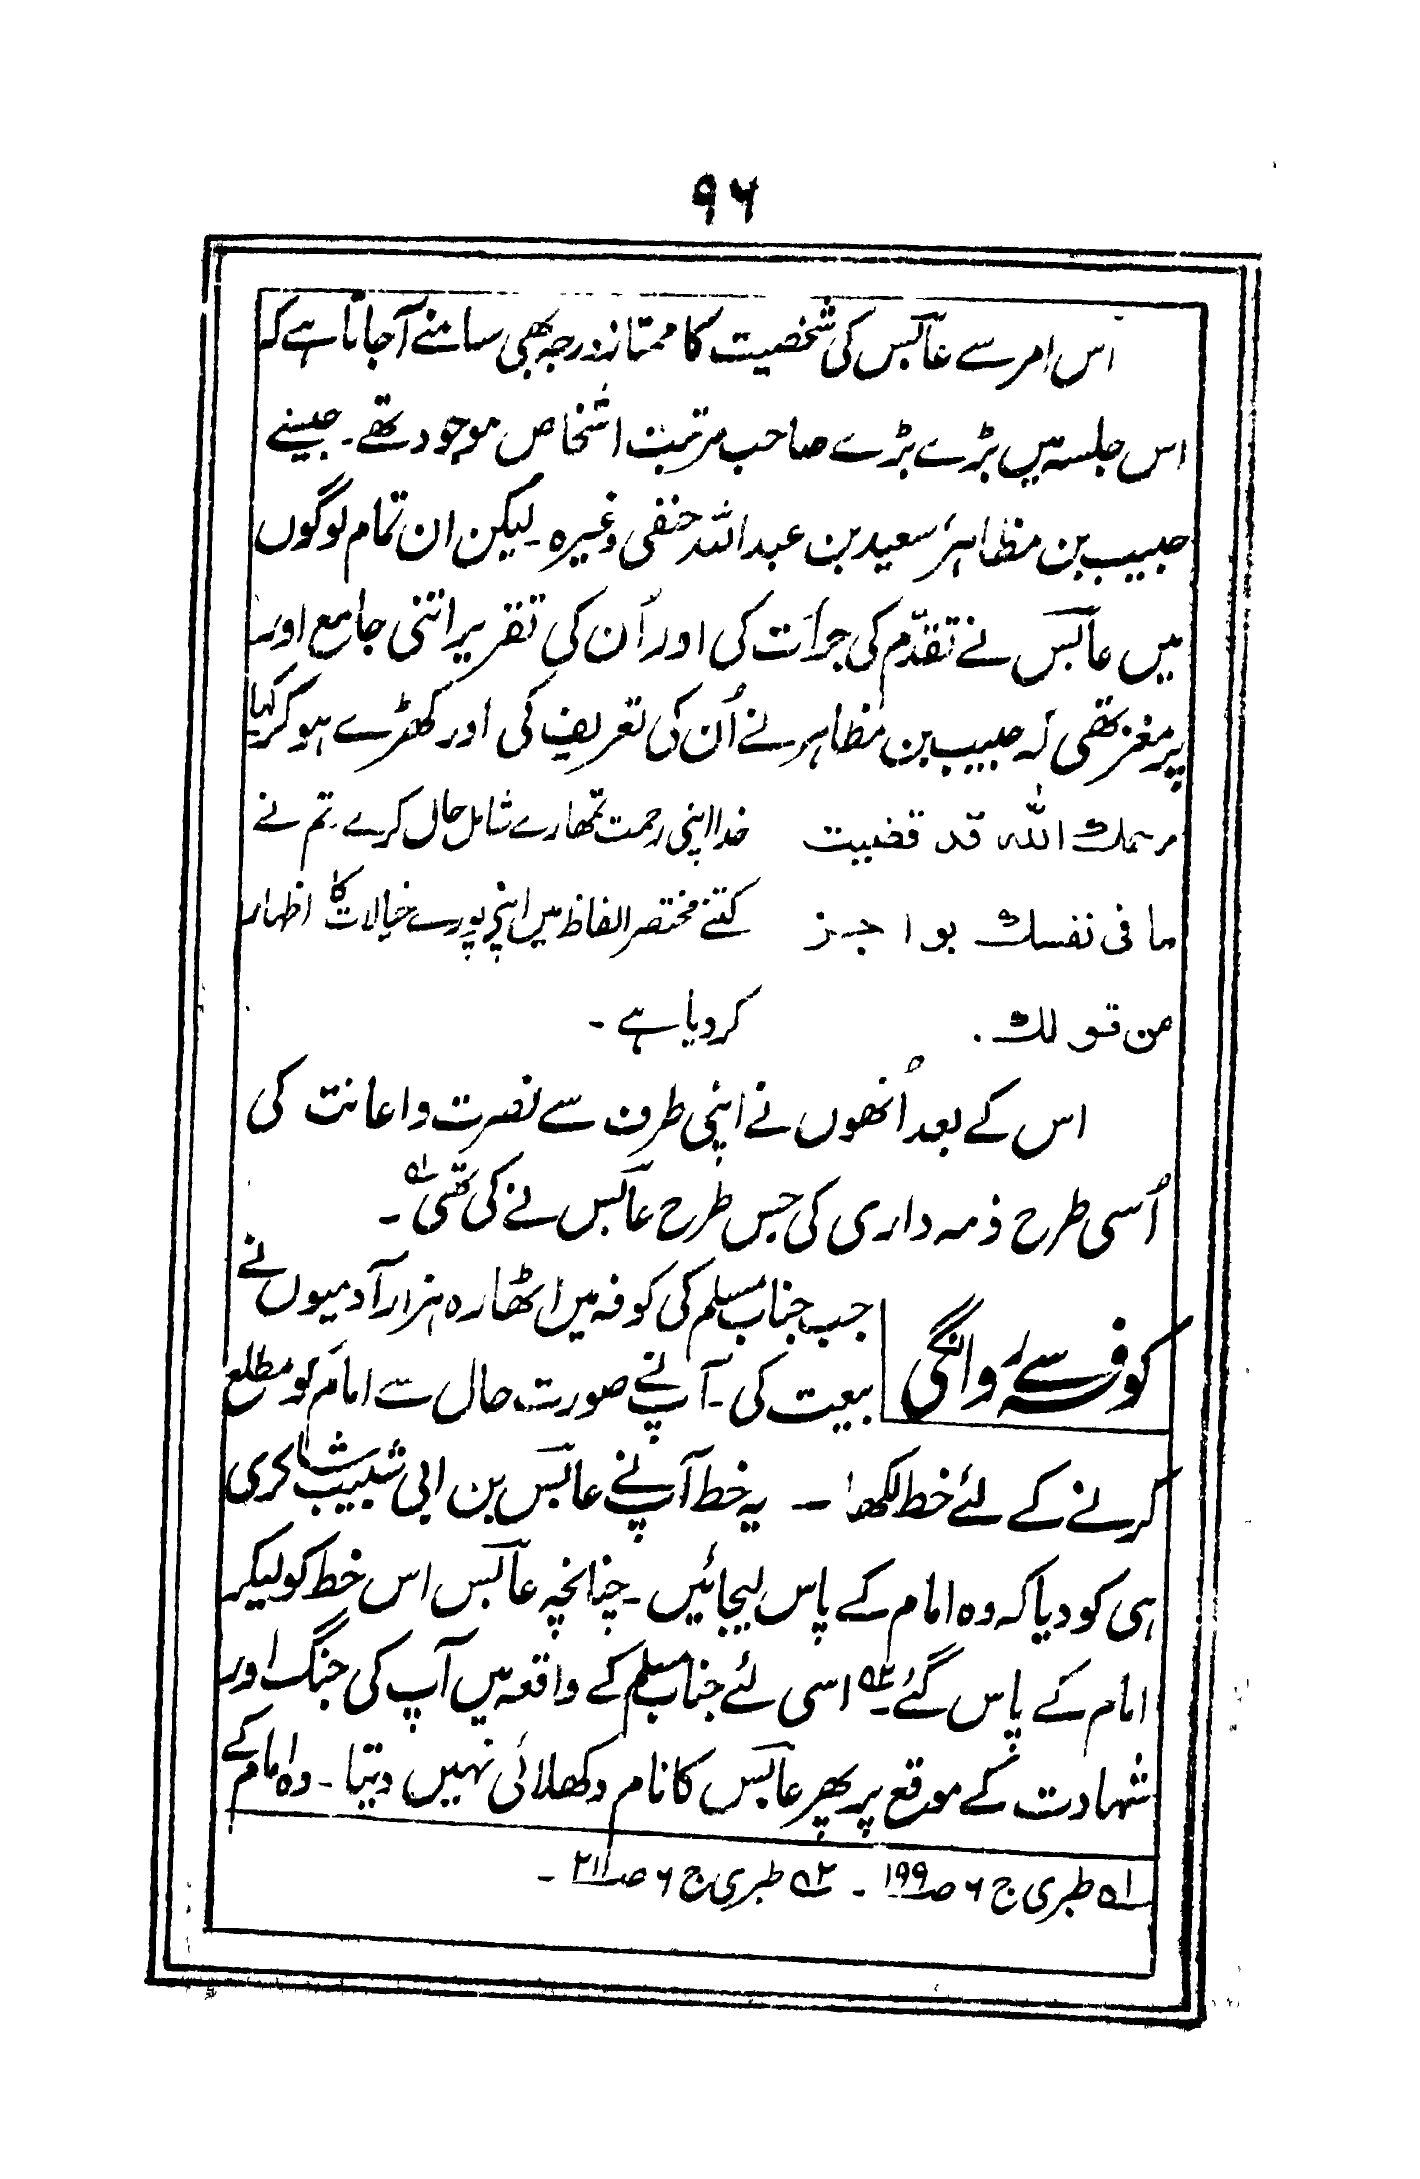 ۹۶
اس امر سے عابس کی شخصیت کا ممتاز درجہ بھی سامنے آجاتا ہے کہ
اس جلسہ میں بڑے بڑے صاحب مرتبت اشخاص موجود تھے۔ جیسے
حبیب بن مظاہر، سعید بن عبداللہ حنفی وغیرہ۔ لیکن ان تمام لوگوں
میں عابس نے تقدّم کی جرأت کی اور اُن کی تقریر اتنی جامع اور
پرمغز تھی کہ حبیب بن مظاہر نے اُن کی تعریف کی اور کھڑے ہوکر کہا
رحمك الله قد قضيت خدا اپنی رحمت تمھارے شامل حال کرے۔ تم نے
ما فی نفسك بواجز کتنے مختصر الفاظ میں اپنے پورے خیالات کا اظہار
من قولك۔ کردیا ہے۔
اس کے بعد اُنھوں نے اپنی طرف سے نصرت واعانت کی
اُسی طرح ذمہ داری کی جس طرح عابس نے کی تھی ۱؎۔
کوفہ سے روانگی
جب جناب مسلم کی کوفہ میں اٹھارہ ہزار آدمیوں نے
بیعت کی۔ آپ نے صورت حال سے امامؑ کو مطلع
کرنے کے لئے خط لکھا۔ یہ خط آپ نے عابس بن ابی شبیب شاکری
ہی کو دیا کہ وہ امام کے پاس لیجائیں۔ چنانچہ عابس اس خط کو لیکر
امام کے پاس گئے ۲؎۔ اسی لئے جناب مسلم کے واقعہ میں آپ کی جنگ اور
شہادت کے موقع پر پھر عابس کا نام دکھلائی نہیں دیتا۔ وہ امام کے
۱؎ طبری ج ۶ ص ۱۹۹۔ ۲؎ طبری ج ۶ ص ۲۱۱۔